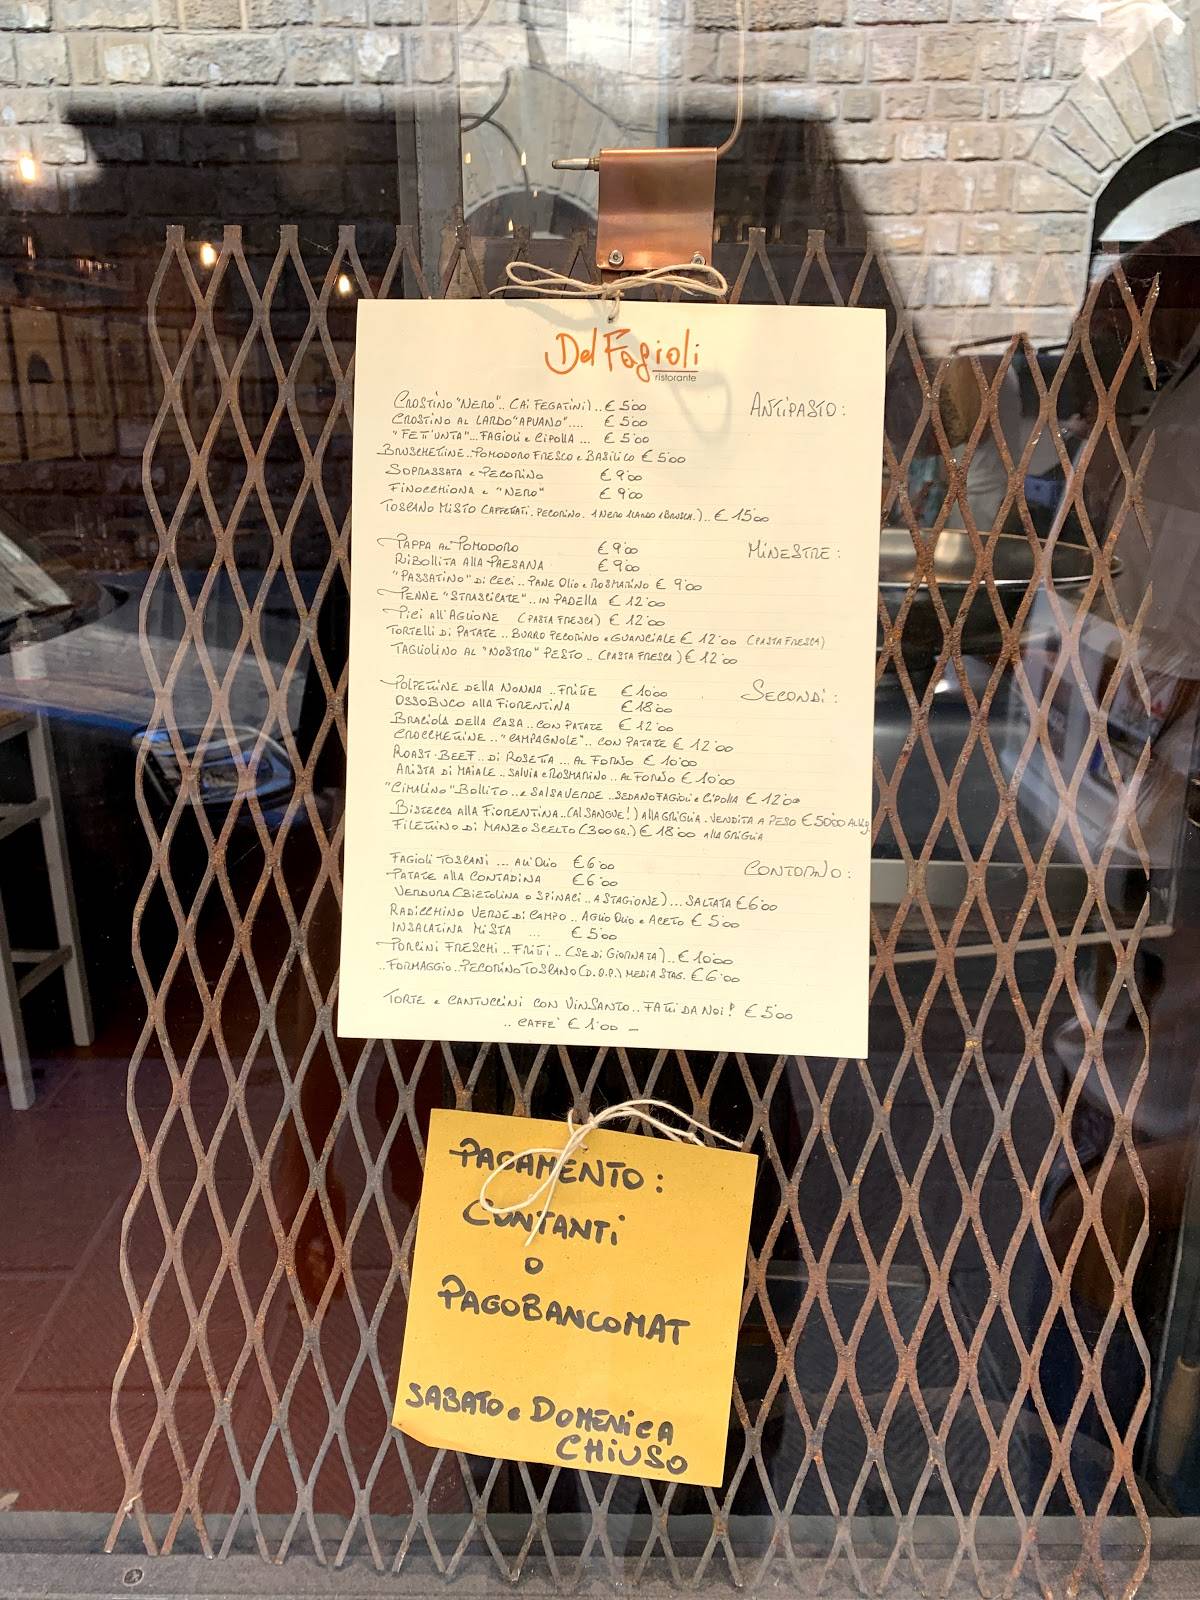 Del Fagioli
ristorante
ANTIPASTO:
CROSTINO "NERO".. (AI FEGATINI).. € 5'00
CROSTINO AL LARDO "APUANO".... € 5'00
"FETT'UNTA"... FAGIOLI e CIPOLLA ... € 5'00
BRUSCHETTINE.. POMODORO FRESCO e BASILICO € 5'00
SOPRASSATA e PECORINO € 9'00
FINOCCHIONA e "NERO" € 9'00
TOSCANO MISTO (AFFETTATI. PECORINO. 1 NERO 1 LARDO 1 BRUSCH.).. € 15'00
MINESTRE:
PAPPA AL POMODORO € 9'00
RIBOLLITA ALLA PAESANA € 9'00
"PASSATINO" DI CECI.. PANE OLIO e ROSMARINO € 9'00
PENNE "STRASCICATE".. IN PADELLA € 12'00
PICI ALL'AGLIONE (PASTA FRESCA) € 12'00
TORTELLI DI PATATE.. BURRO PECORINO e GUANCIALE € 12'00 (PASTA FRESCA)
TAGLIOLINO AL "NOSTRO" PESTO.. (PASTA FRESCA) € 12'00
SECONDI:
POLPETTINE DELLA NONNA.. FRITTE € 10'00
OSSOBUCO ALLA FIORENTINA € 18'00
BRACIOLA DELLA CASA.. CON PATATE € 12'00
CROCCHETTINE.. "CAMPAGNOLE".. CON PATATE € 12'00
ROAST-BEEF.. DI ROSETTA... AL FORNO € 10'00
ARISTA DI MAIALE.. SALVIA e ROSMARINO.. AL FORNO € 10'00
"CIMALINO" BOLLITO.. e SALSA VERDE.. SEDANO FAGIOLI e CIPOLLA € 12'00
BISTECCA ALLA FIORENTINA.. (AL SANGUE!) ALLA GRIGLIA. VENDITA A PESO € 50'00 AL Kg.
FILETTINO DI MANZO SCELTO (300 GR.) € 18'00 ALLA GRIGLIA
CONTORNO:
FAGIOLI TOSCANI ... ALL'OLIO € 6'00
PATATE ALLA CONTADINA € 6'00
VERDURA (BIETOLINA o SPINACI.. A STAGIONE)... SALTATA € 6'00
RADICCHINO VERDE DI CAMPO.. AGLIO OLIO e ACETO € 5'00
INSALATINA MISTA ... € 5'00
PORCINI FRESCHI.. FRITTI.. (SE DI GIORNATA).. € 10'00
..FORMAGGIO.. PECORINO TOSCANO (D.O.P.) MEDIA STAG. € 6'00
TORTE e CANTUCCINI CON VINSANTO.. FATTI DA NOI! € 5'00
.. CAFFE' € 1'00 —
PAGAMENTO:
CONTANTI
O
PAGOBANCOMAT
SABATO e DOMENICA
CHIUSO